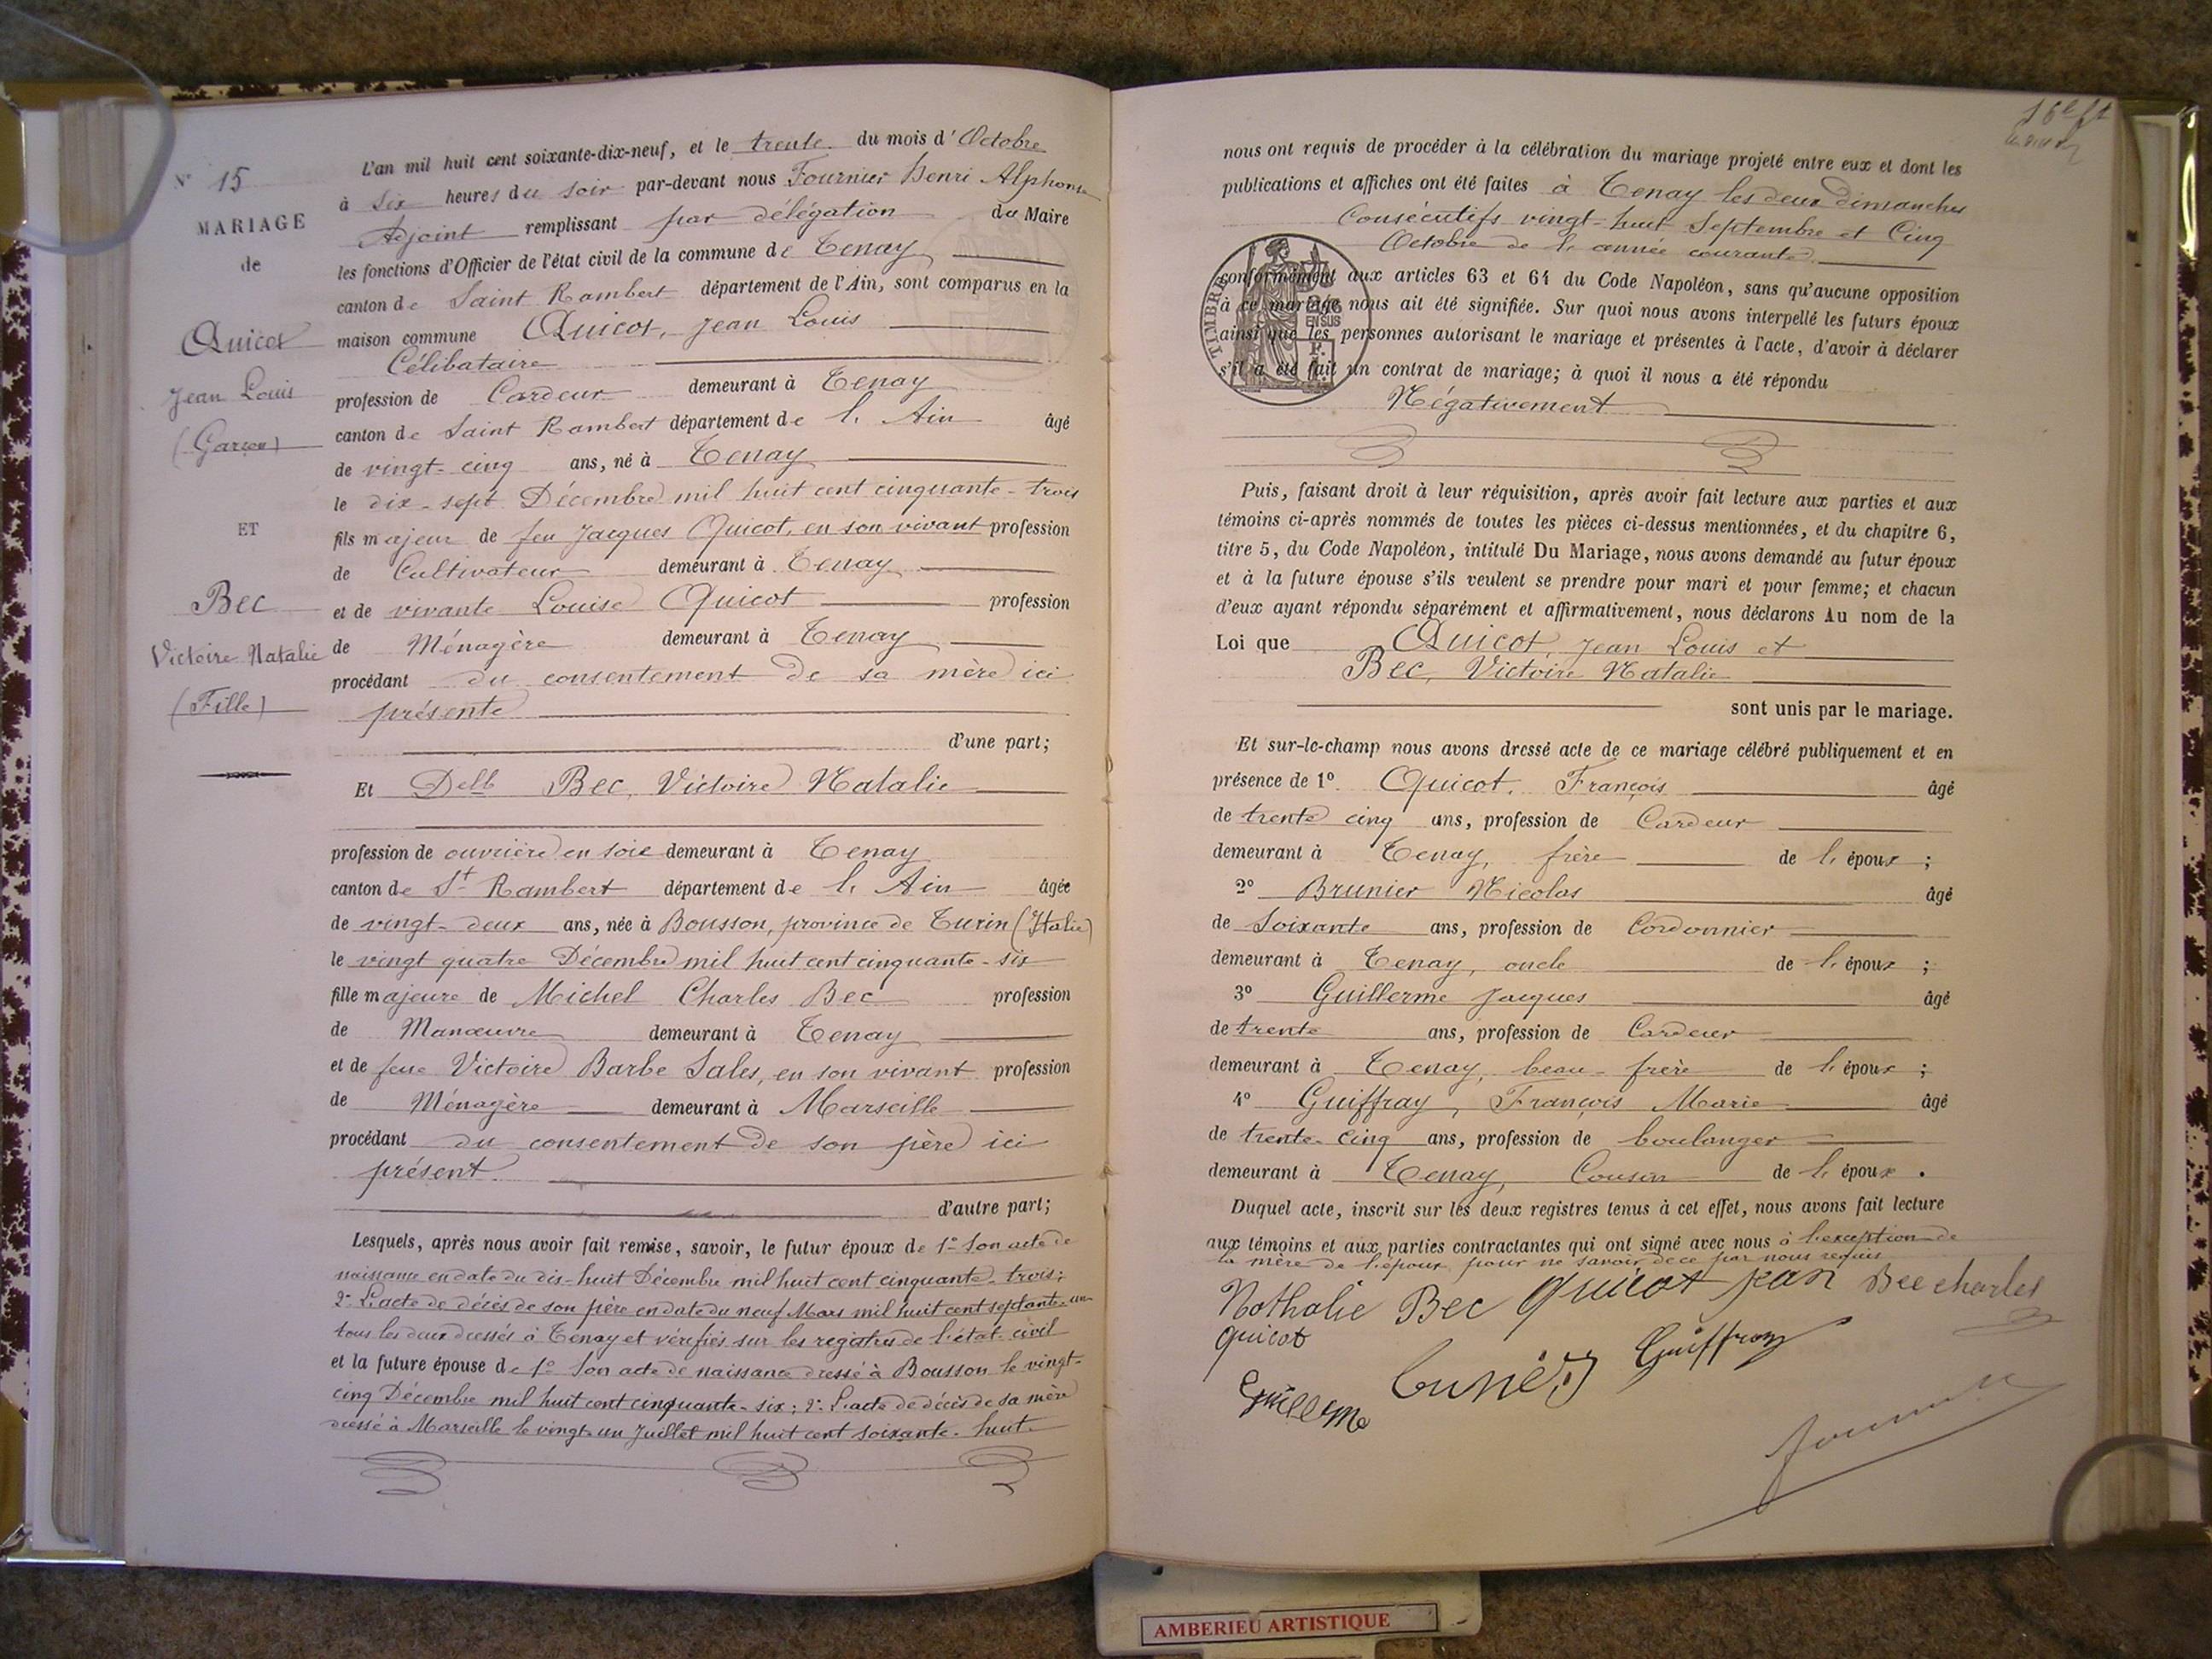 N° 15
MARIAGE
de
Quicot
Jean Louis
(Garçon)
ET
Bec
Victoire Natalie
(Fille)
L'an mil huit cent soixante-dix-neuf, et le trente du mois d'Octobre
à six heures du soir par-devant nous Fournier Henri Alphonse
Adjoint remplissant par délégation du Maire
les fonctions d'Officier de l'état civil de la commune de Tenay
canton de Saint Rambert département de l'Ain, sont comparus en la
maison commune Quicot, Jean Louis
Célibataire
profession de Cardeur demeurant à Tenay
canton de Saint Rambert département de l'Ain âgé
de vingt-cinq ans, né à Tenay
le dix-sept Décembre mil huit cent cinquante-trois
fils majeur de feu Jacques Quicot, en son vivant profession
de Cultivateur demeurant à Tenay
et de vivante Louise Quicot profession
de Ménagère demeurant à Tenay
procédant du consentement de sa mère ici
présente
d'une part;
Et Delle Bec, Victoire Natalie
profession de ouvrière en soie demeurant à Tenay
canton de St Rambert département de l'Ain âgée
de vingt-deux ans, née à Bousson, province de Turin (Italie)
le vingt quatre Décembre mil huit cent cinquante-six
fille majeure de Michel Charles Bec profession
de Manœuvre demeurant à Tenay
et de feue Victoire Barbe Sales, en son vivant profession
de Ménagère demeurant à Marseille
procédant du consentement de son père ici
présent
d'autre part;
Lesquels, après nous avoir fait remise, savoir, le futur époux de 1° Son acte de
naissance en date du dix-huit Décembre mil huit cent cinquante-trois;
2° L'acte de décès de son père en date du neuf Mars mil huit cent septante-un
tous les deux dressés à Tenay et vérifiés sur les registres de l'état-civil
et la future épouse de 1° Son acte de naissance dressé à Bousson le vingt-
cinq Décembre mil huit cent cinquante-six; 2° L'acte de décès de sa mère
dressé à Marseille le vingt-un Juillet mil huit cent soixante-huit.
nous ont requis de procéder à la célébration du mariage projeté entre eux et dont les
publications et affiches ont été faites à Tenay les deux Dimanches
Consécutifs vingt-huit Septembre et Cinq
Octobre de l'année courante
conformément aux articles 63 et 64 du Code Napoléon, sans qu'aucune opposition
à ce mariage nous ait été signifiée. Sur quoi nous avons interpellé les futurs époux
ainsi que les personnes autorisant le mariage et présentes à l'acte, d'avoir à déclarer
s'il a été fait un contrat de mariage; à quoi il nous a été répondu
Négativement
TIMBRE
EN SUS
Puis, faisant droit à leur réquisition, après avoir fait lecture aux parties et aux
témoins ci-après nommés de toutes les pièces ci-dessus mentionnées, et du chapitre 6,
titre 5, du Code Napoléon, intitulé Du Mariage, nous avons demandé au futur époux
et à la future épouse s'ils veulent se prendre pour mari et pour femme; et chacun
d'eux ayant répondu séparément et affirmativement, nous déclarons Au nom de la
Loi que Quicot, Jean Louis et
Bec, Victoire Natalie
sont unis par le mariage.
Et sur-le-champ nous avons dressé acte de ce mariage célébré publiquement et en
présence de 1° Quicot, François âgé
de trente cinq ans, profession de Cardeur
demeurant à Tenay, frère de l'époux;
2° Brunier Nicolas âgé
de Soixante ans, profession de Cordonnier
demeurant à Tenay, oncle de l'époux;
3° Guillerme Jacques âgé
de trente ans, profession de Cardeur
demeurant à Tenay, beau-frère de l'époux;
4° Guiffray, François Marie âgé
de trente-cinq ans, profession de boulanger
demeurant à Tenay, Cousin de l'époux.
Duquel acte, inscrit sur les deux registres tenus à cet effet, nous avons fait lecture
aux témoins et aux parties contractantes qui ont signé avec nous à l'exception de
la mère de l'époux pour ne savoir de ce par nous requis
Nathalie Bec Quicot jean Bec charles
quicot
Guiffray
Guillerme
AMBERIEU ARTISTIQUE